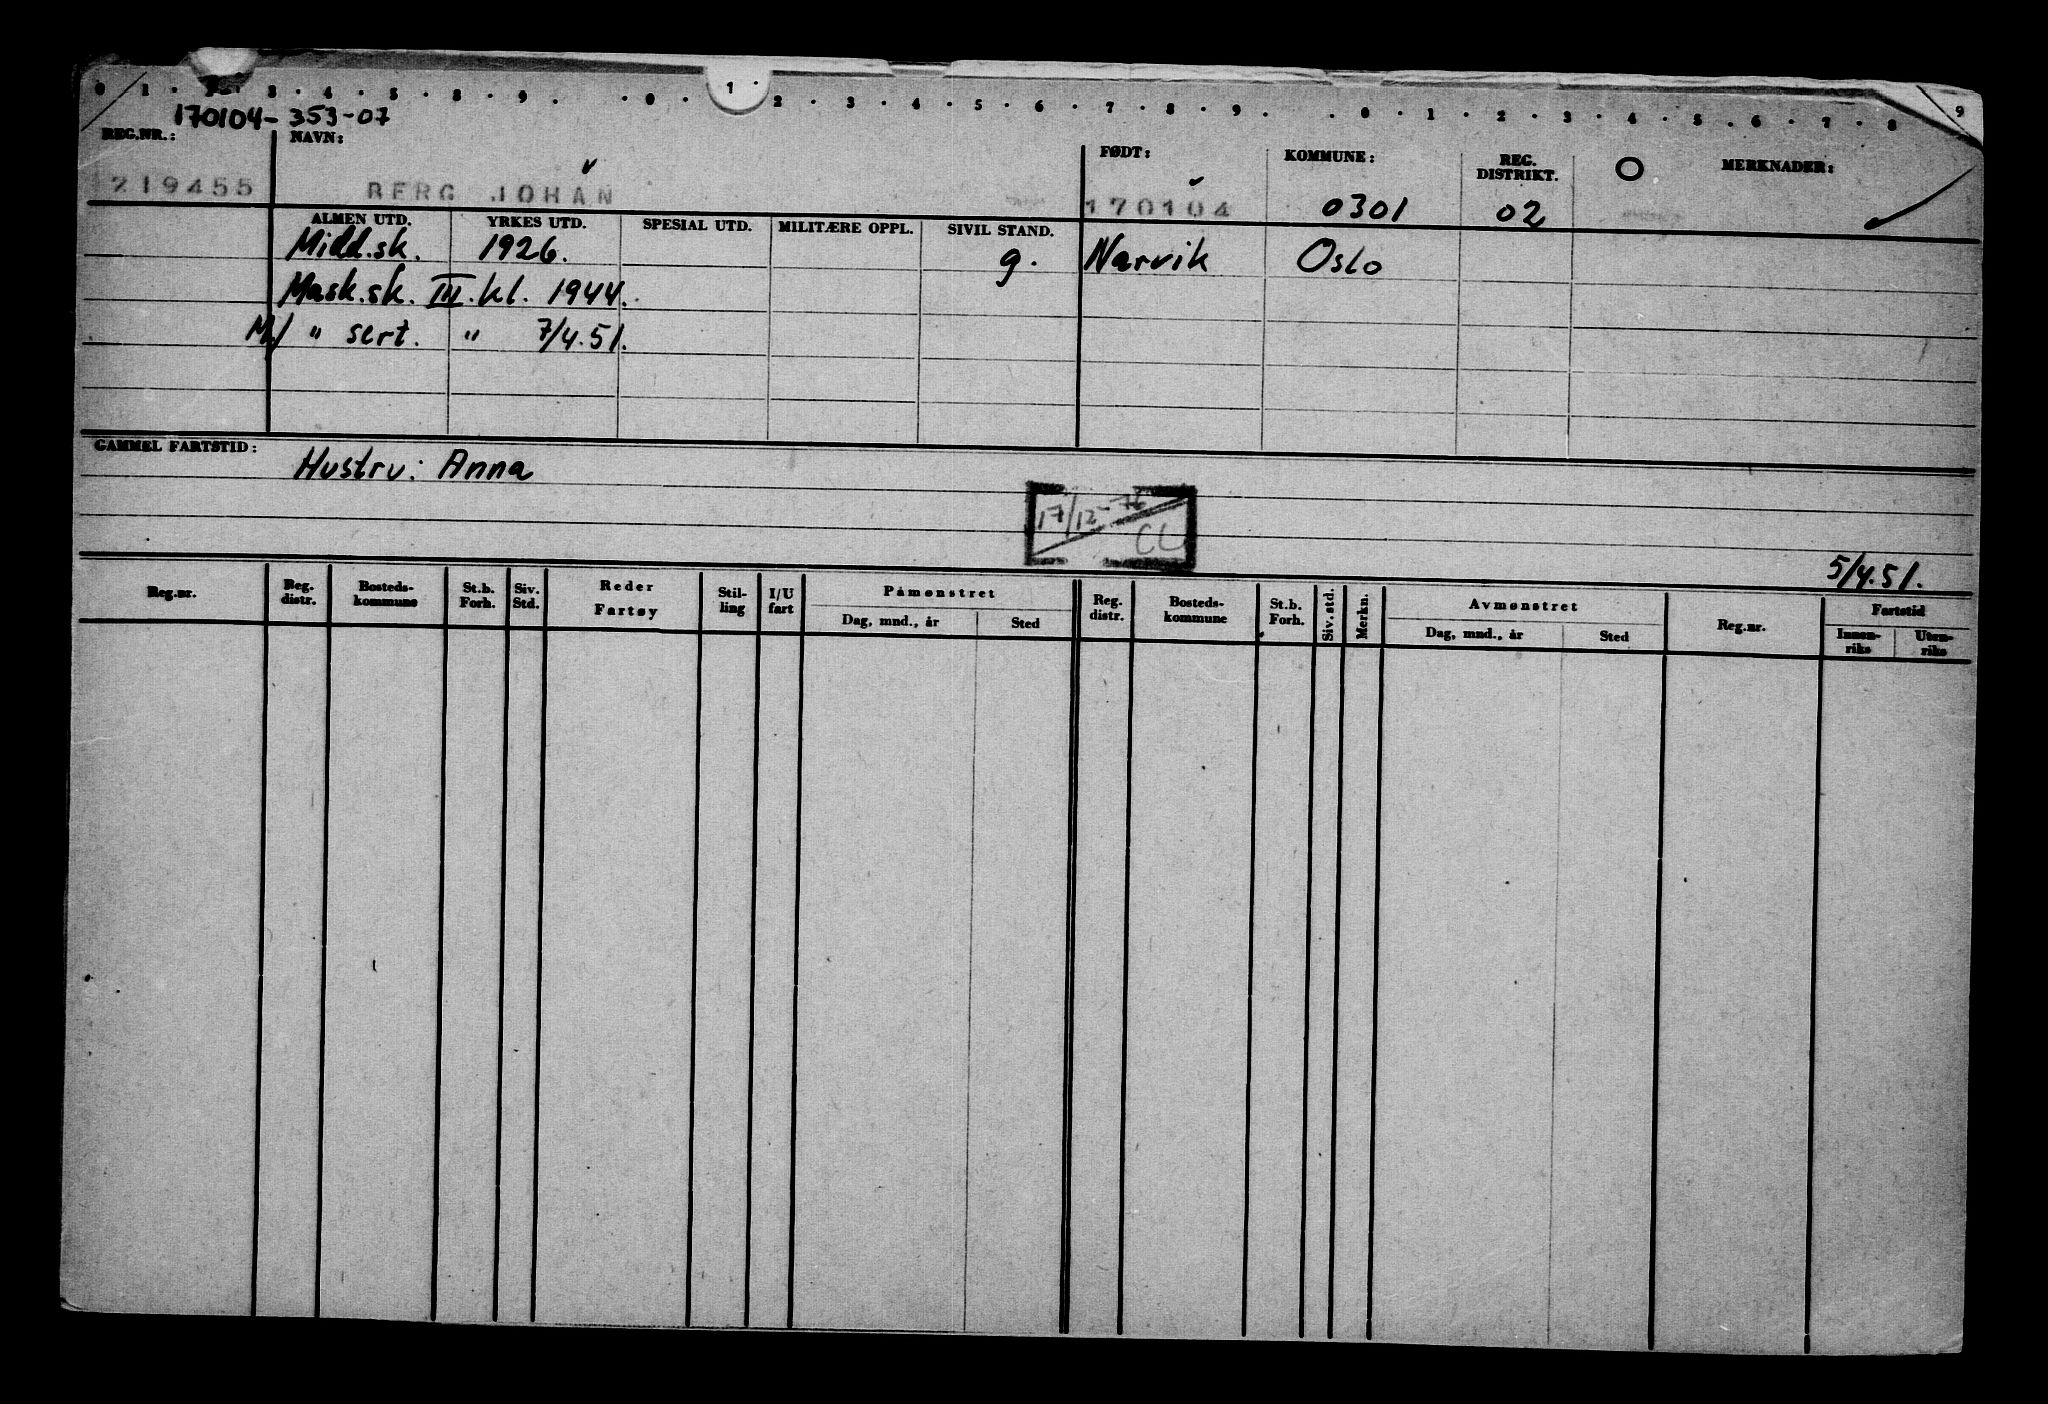 0 1 2 3 4 5 8 9 0 1 2 3 4 5 6 7 8 9 0 1 2 3 4 5 6 7 8 9
170104-353-07
REG.NR.: NAVN: FØDT: KOMMUNE: REG. DISTRIKT. O MERKNADER:
219455 BERG JOHAN 170104 0301 02
ALMEN UTD. YRKES UTD. SPESIAL UTD. MILITÆRE OPPL. SIVIL STAND.
Midd.sk. 1926. g. Narvik Oslo
Mask.sk. III.kl. 1944.
M/ " sert. " 7/4.51.
GAMMEL FARTSTID:
Hustru: Anna
17/12-76
CL
5/4.51.
Reg.nr. Reg. distr. Bosteds-kommune St.b. Forh. Siv. Std. Reder Fartøy Stil-ling I/U fart Påmønstret Dag, mnd., år Sted Reg. distr. Bosteds-kommune St.b. Forh. Siv. std. Merkn. Avmønstret Dag, mnd., år Sted Reg.nr. Fartstid Innen-riks Uten-riks